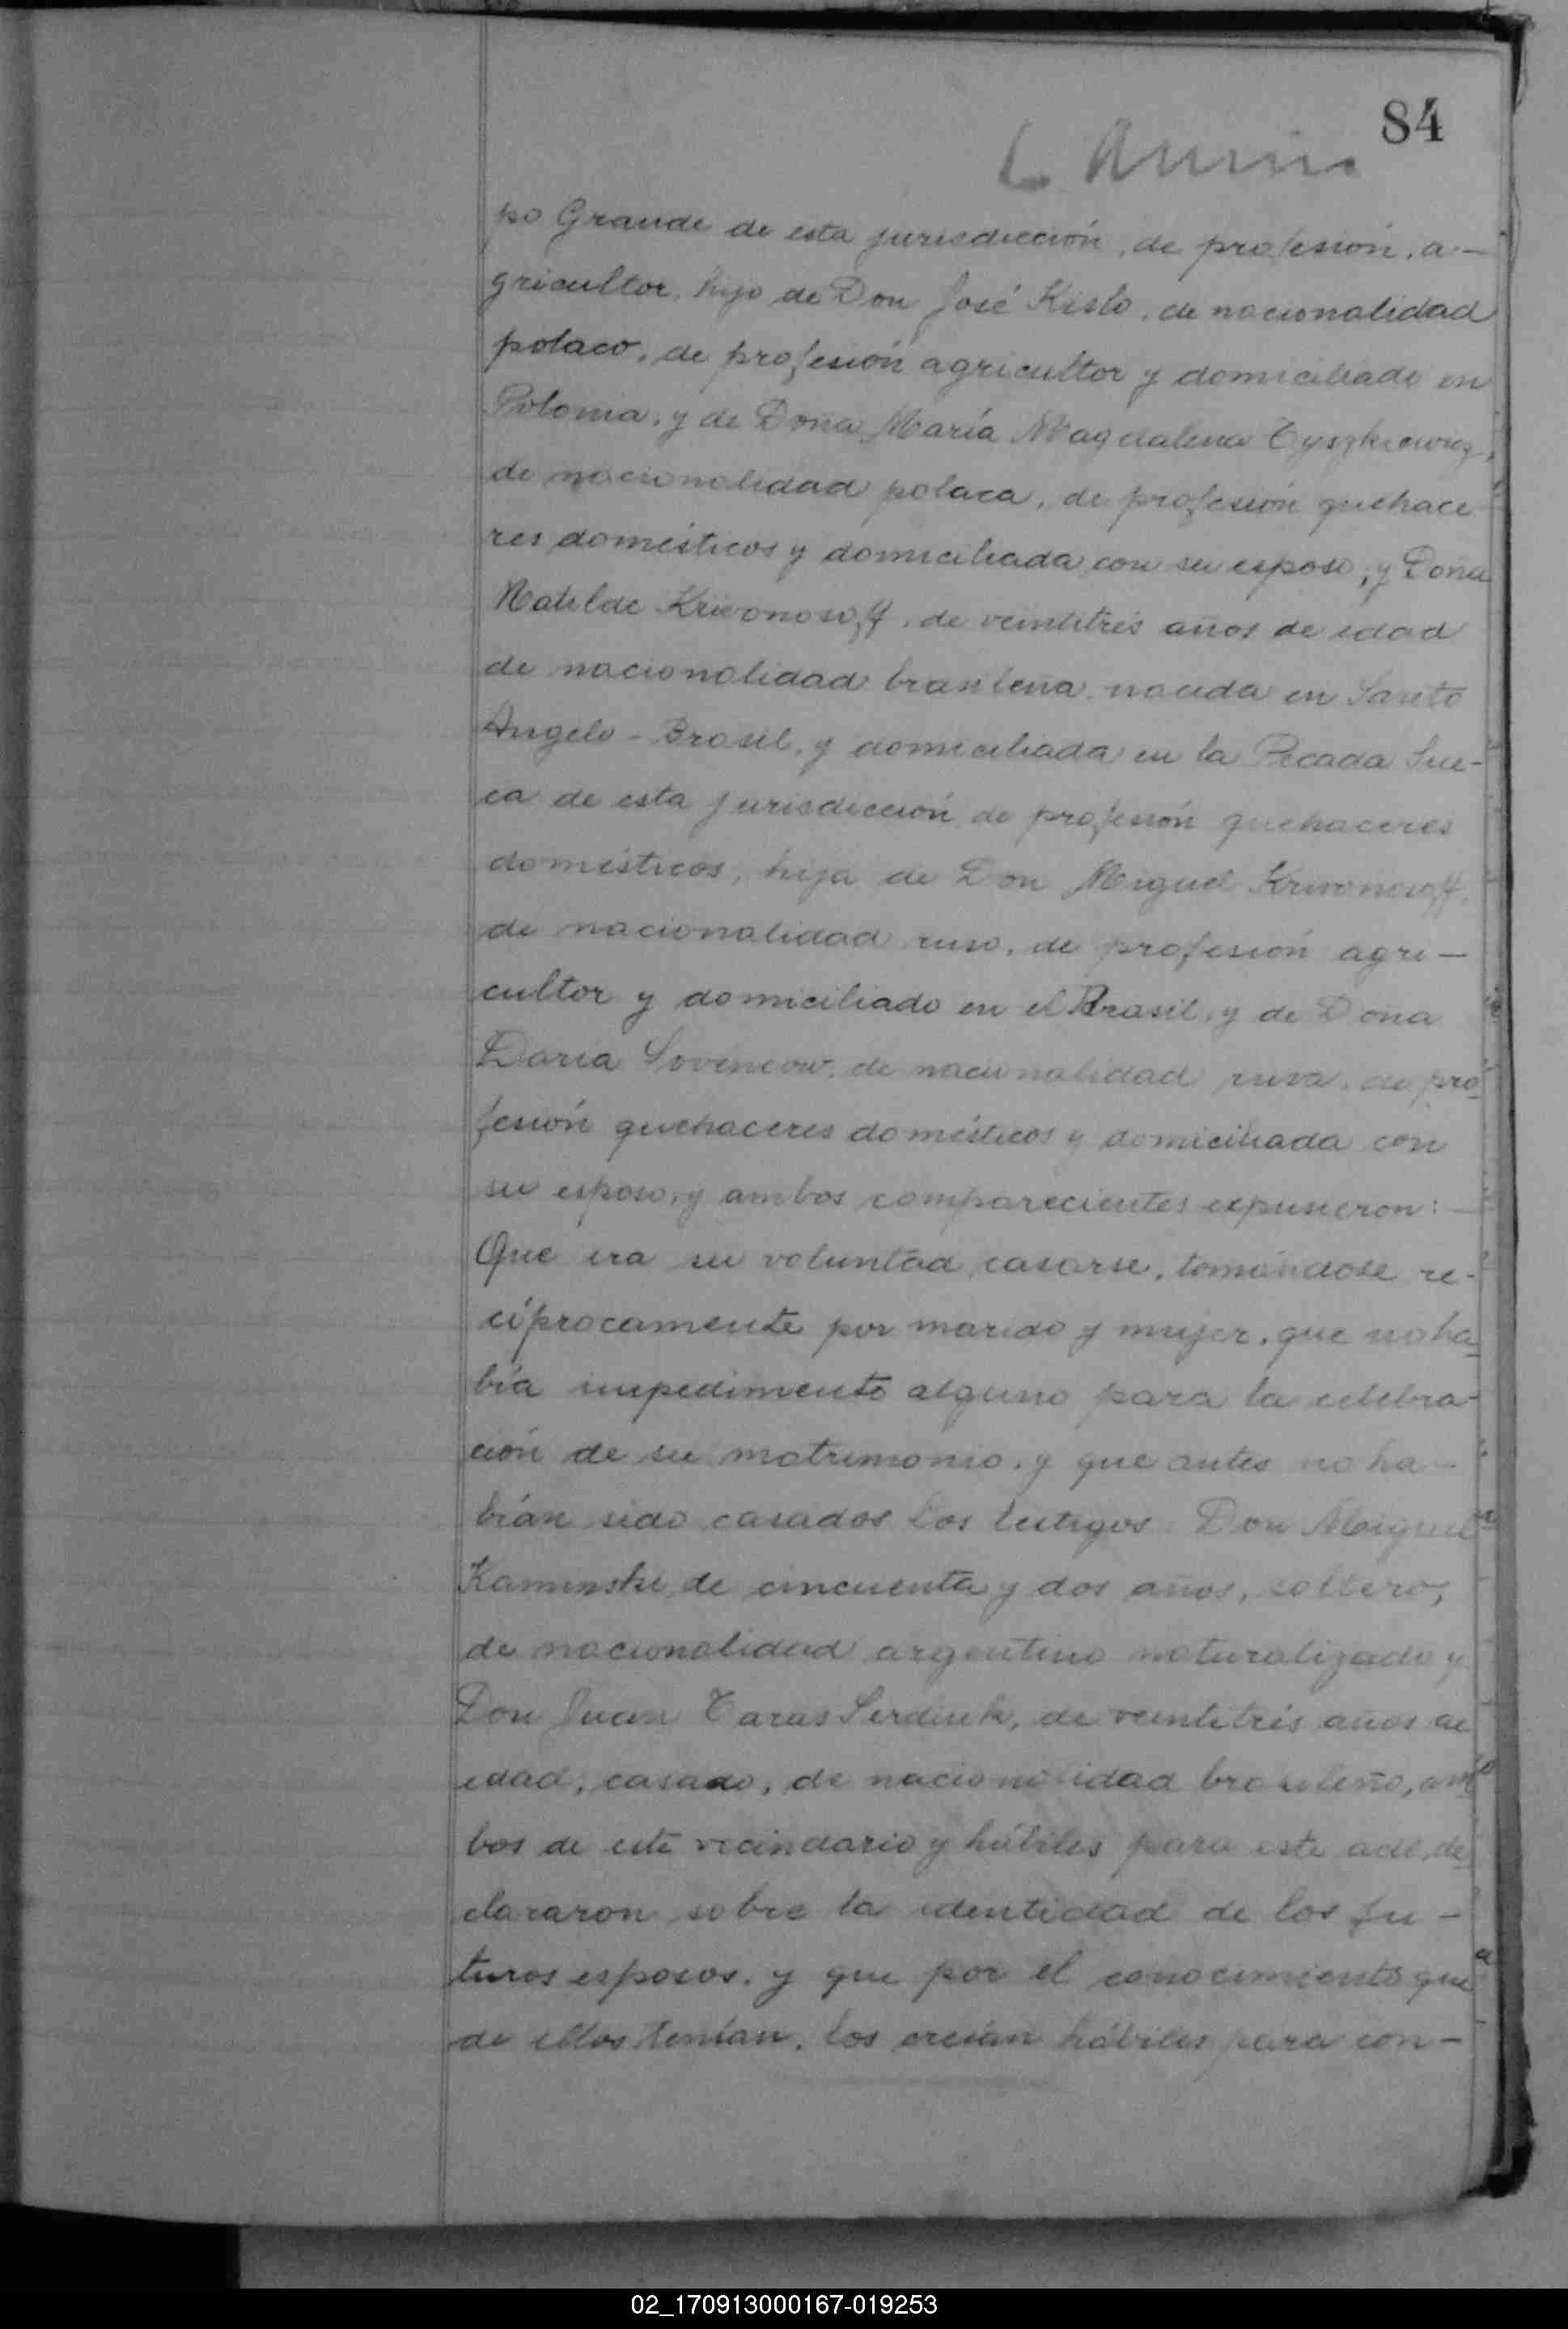 84
po Grande de esta jurisdicción, de profesión, a-
gricultor, hijo de Don José Kislo, de nacionalidad
polaco, de profesión agricultor y domiciliado en
Polonia, y de Doña María Magdalena Tyszkiewicz,
de nacionalidad polaca, de profesión quehace
res domésticos y domiciliada con su esposo, y Doña
Matilde Krivonosoff, de veintitrés años de edad
de nacionalidad brasileña, nacida en Santo
Angelo - Brasil, y domiciliada en la Picada Sue-
ca de esta jurisdicción de profesión quehaceres
domésticos, hija de Don Miguel Krivonosoff,
de nacionalidad ruso, de profesión agri-
cultor y domiciliado en el Brasil, y de Doña
Daria de nacionalidad rusa, de pro
fesión quehaceres domésticos y domiciliada con
su esposo, y ambos comparecientes expusieron: -
Que era su voluntad casarse, tomándose re-
cíprocamente por marido y mujer, que no ha
bía impedimento alguno para la celebra-
ción de su matrimonio, y que antes no ha-
bían sido casados Los testigos: Don Miguel
Kaminski, de cincuenta y dos años, soltero,
de nacionalidad argentino naturalizado y
Don Juan Taras Serdiuk, de veintitrés años de
edad, casado, de nacionalidad brasileño, am
bos de este vecindario y hábiles para este acto, de
clararon sobre la identidad de los fu-
turos esposos, y que por el conocimiento que
de ellos tenían, los creían hábiles para con-
02_170913000167-019253